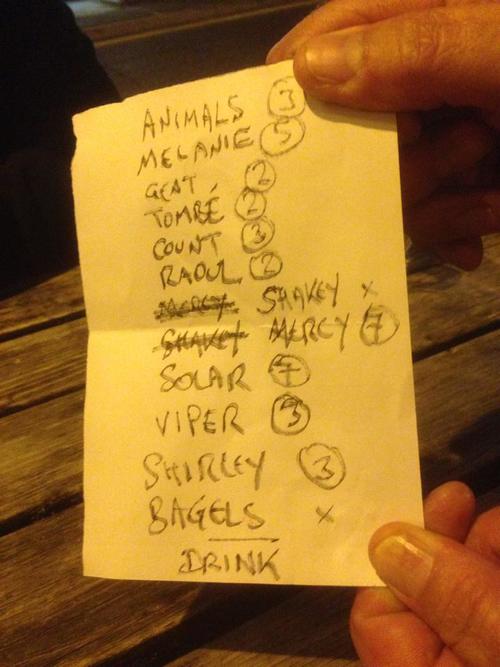 ANIMALS 3
MELANIE 5
GENT 2
TOMBÉ 2
COUNT 3
RAOUL 2
MERCY SHAKEY x
SHAKEY MERCY 7
SOLAR 7
VIPER 3
SHIRLEY 3
BAGELS x
DRINK